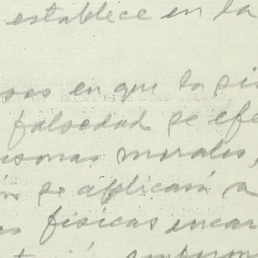 establece en la
en que la
falsedad se efe
morales,
se aplicará a
físicas encar